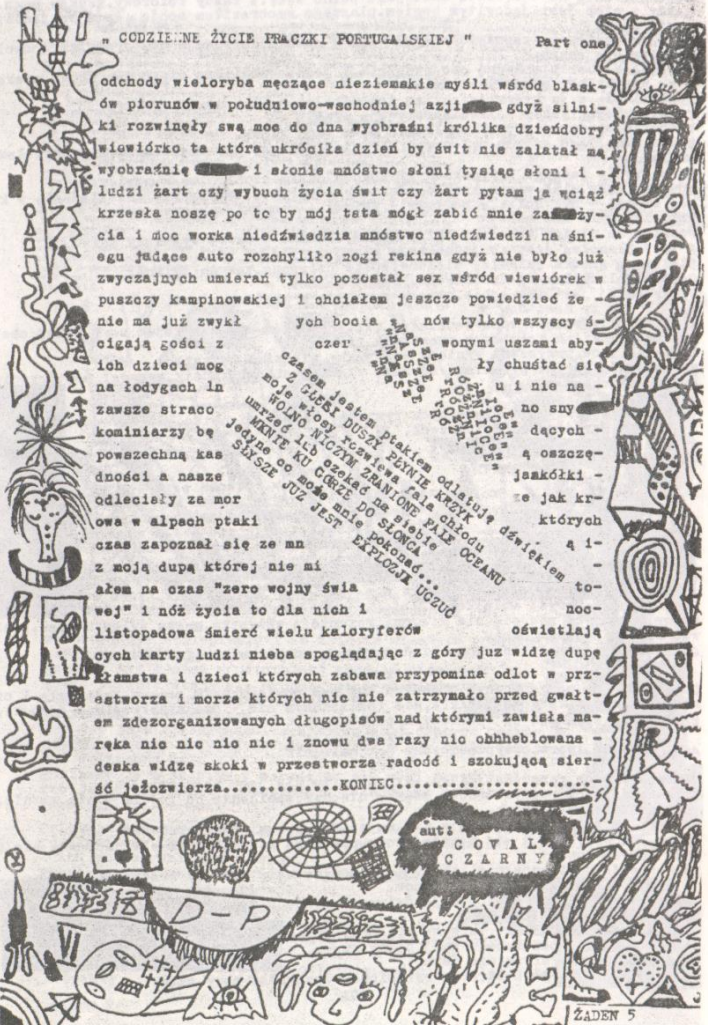 „ CODZIENNE ŻYCIE PRACZKI PORTUGALSKIEJ "
Part one
odchody wieloryba męczące nieziemskie myśli wśród blask-
ów piorunów w południowo-wschodniej azji gdyż silni-
ki rozwinęły swą moc do dna wyobraźni królika dzieńdobry
wiewiórko ta która ukróciła dzień by świt nie zalatał mą
wyobraźnię i słonie mnóstwo słoni tysiąc słoni i -
ludzi żart czy wybuch życia świt czy żart pytam ja wciąż
krzesła noszę po to by mój tata mógł zabić mnie za ży-
cia i moc worka niedźwiedzia mnóstwo niedźwiedzi na śni-
egu jadące auto rozchyliło nogi rekina gdyż nie było już
zwyczajnych umierań tylko pozostał sex wśród wiewiórek w
puszczy kampinowskiej i chciałem jeszcze powiedzieć że -
nie ma już zwykł ych bocia nów tylko wszyscy ś-
cigają gości z czer wonymi uszami aby-
ich dzieci mog ły chuśtać się
na łodygach ln u i nie na -
zawsze straco no sny
kominiarzy bę dących -
powszechną kas ą oszczę-
dności a nasze jaskółki -
odleciały za mor ze jak kr-
owa w alpach ptaki których
czas zapoznał się ze mn ą i-
z moją dupą której nie mi
ałem na czas "zero wojny świa to-
wej" i nóż życia to dla nich i noc-
listopadowa śmierć wielu kaloryferów oświetlają
cych karty ludzi nieba spoglądając z góry juz widzę dupę
kłamstwa i dzieci których zabawa przypomina odlot w prz-
estworza i morza których nic nie zatrzymało przed gwałt-
em zdezorganizowanych długopisów nad którymi zawisła ma-
ręka nic nic nic nic i znowu dwa razy nic ohhheblowana -
deska widzę skoki w przestworza radość i szokującą sier-
ść jeżozwierza.............KONIEC...................-
czasem jestem ptakiem odlatuję dźwiękiem
Z GŁĘBI DUSZY PŁYNIE KRZYK
moje włosy rozwiewa fala chłodu
WOLNO NICZYM ZRANIONE FALE OCEANU
umrzeć lub czekać na siebie
MKNIE KU GÓRZE DO SŁOŃCA
jedyne co może mnie pokonać...
SŁYSZĘ JUŻ JEST EXPLOZJA UCZUĆ
aut:
GOVAL
CZARNY
D-P
VI
ŻADEN 5